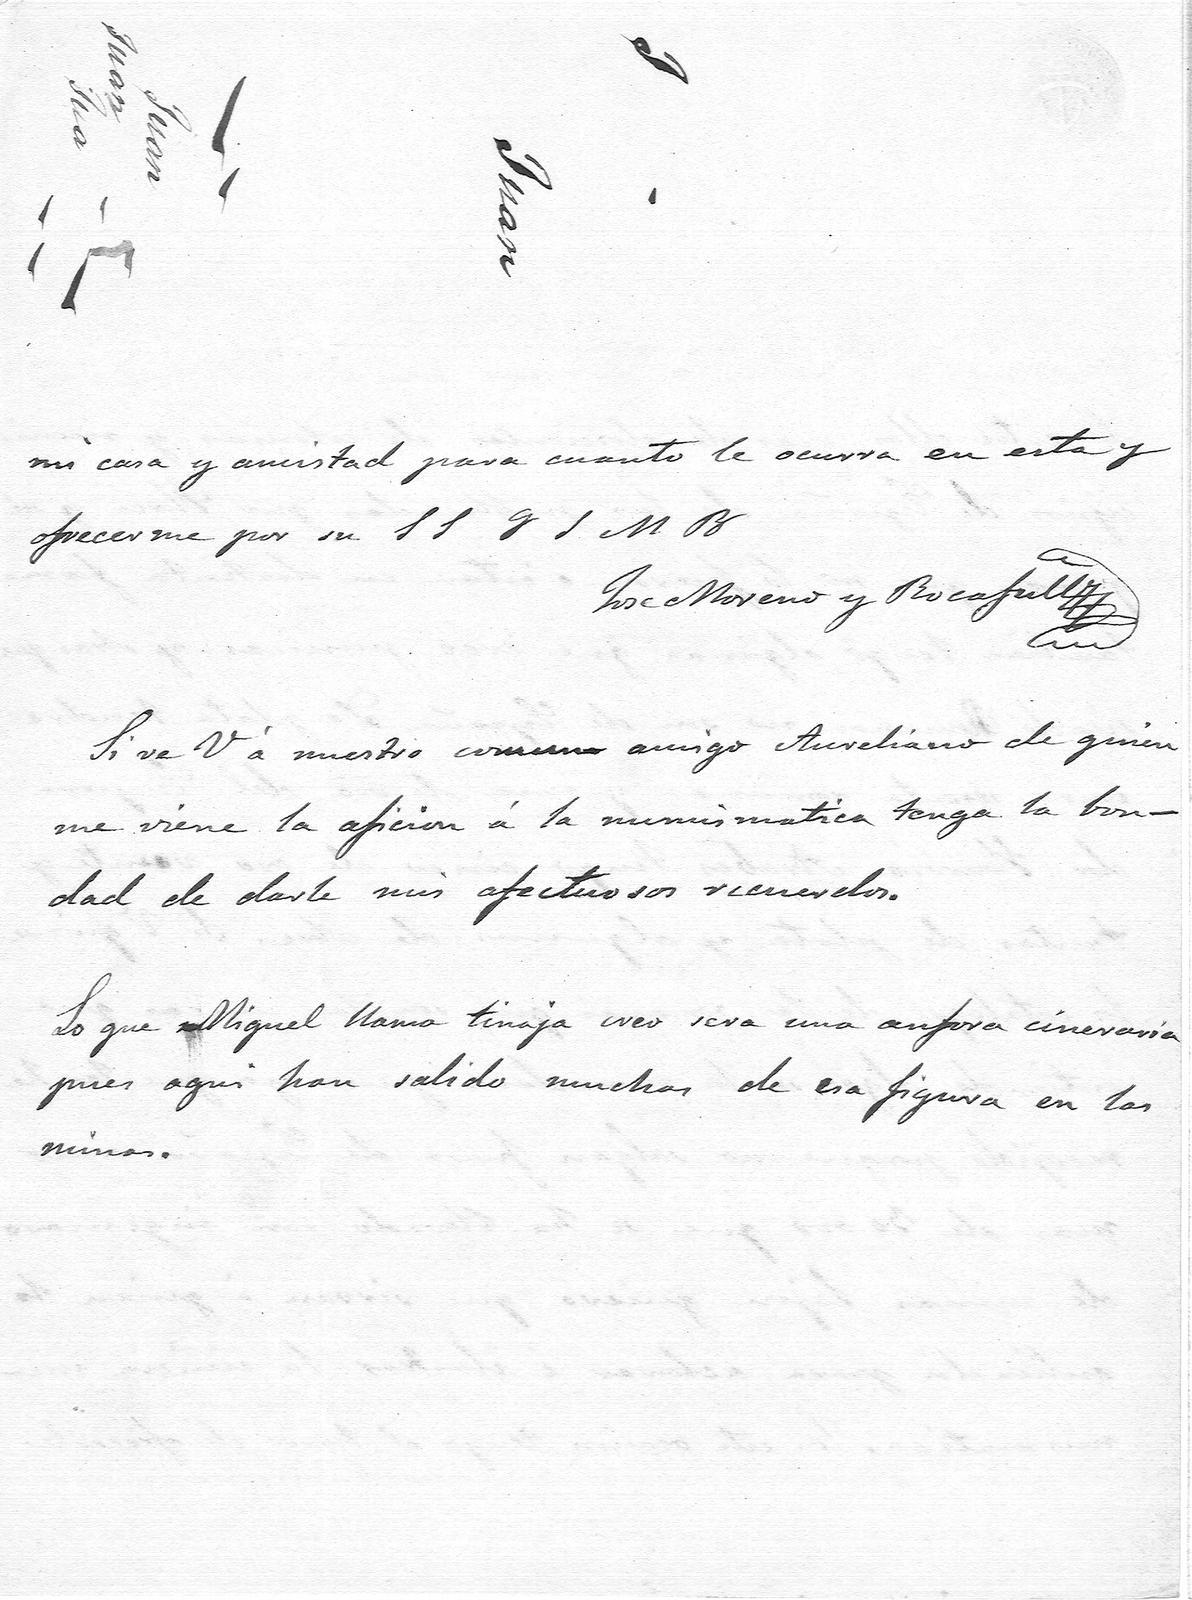 Juan
Juan
Jua
J
Juan
mi casa y amistad para cuanto le ocurra en esta y
ofrecerme por su S S Q S M B
Jose Moreno y Rocafull
Si ve V á nuestro comun amigo Aureliano de quien
me viene la aficion á la numismatica tenga la bon-
dad de darle mis afectuosos recuerdos.
Lo que Miguel llama tinaja creo sera una anfora cineraria
pues aqui han salido muchas de esa figura en las
minas.